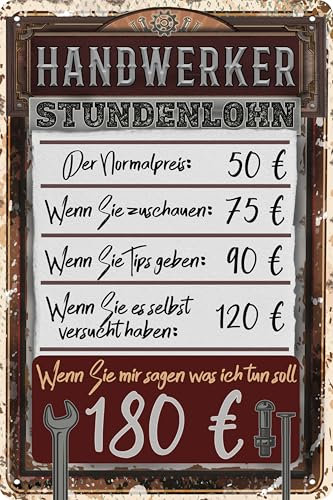 HANDWERKER
STUNDENLOHN
Der Normalpreis: 50 €
Wenn Sie zuschauen: 75 €
Wenn Sie Tips geben: 90 €
Wenn Sie es selbst
versucht haben: 120 €
Wenn Sie mir sagen was ich tun soll
180 €